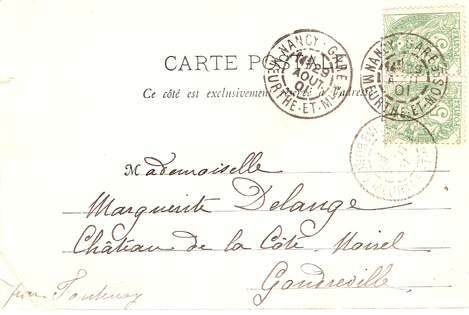 CARTE POSTALE
Ce côté est exclusivement à l'adresse
NANCY-GARE
29
AOUT
01
MEURTHE-ET-MOSELLE
NANCY-GARE
29
01
MEURTHE-ET-MOS
POSTES
Mademoiselle
Marguerite Delange
Château de la Côte
Gondreville
Fontenoy